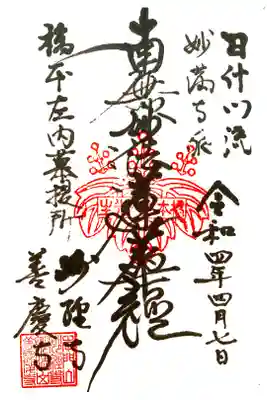 日什門流
妙満寺派
令和四年四月七日
南無妙法蓮華経
橋本左内菩提所
妙經寺
善慶寺